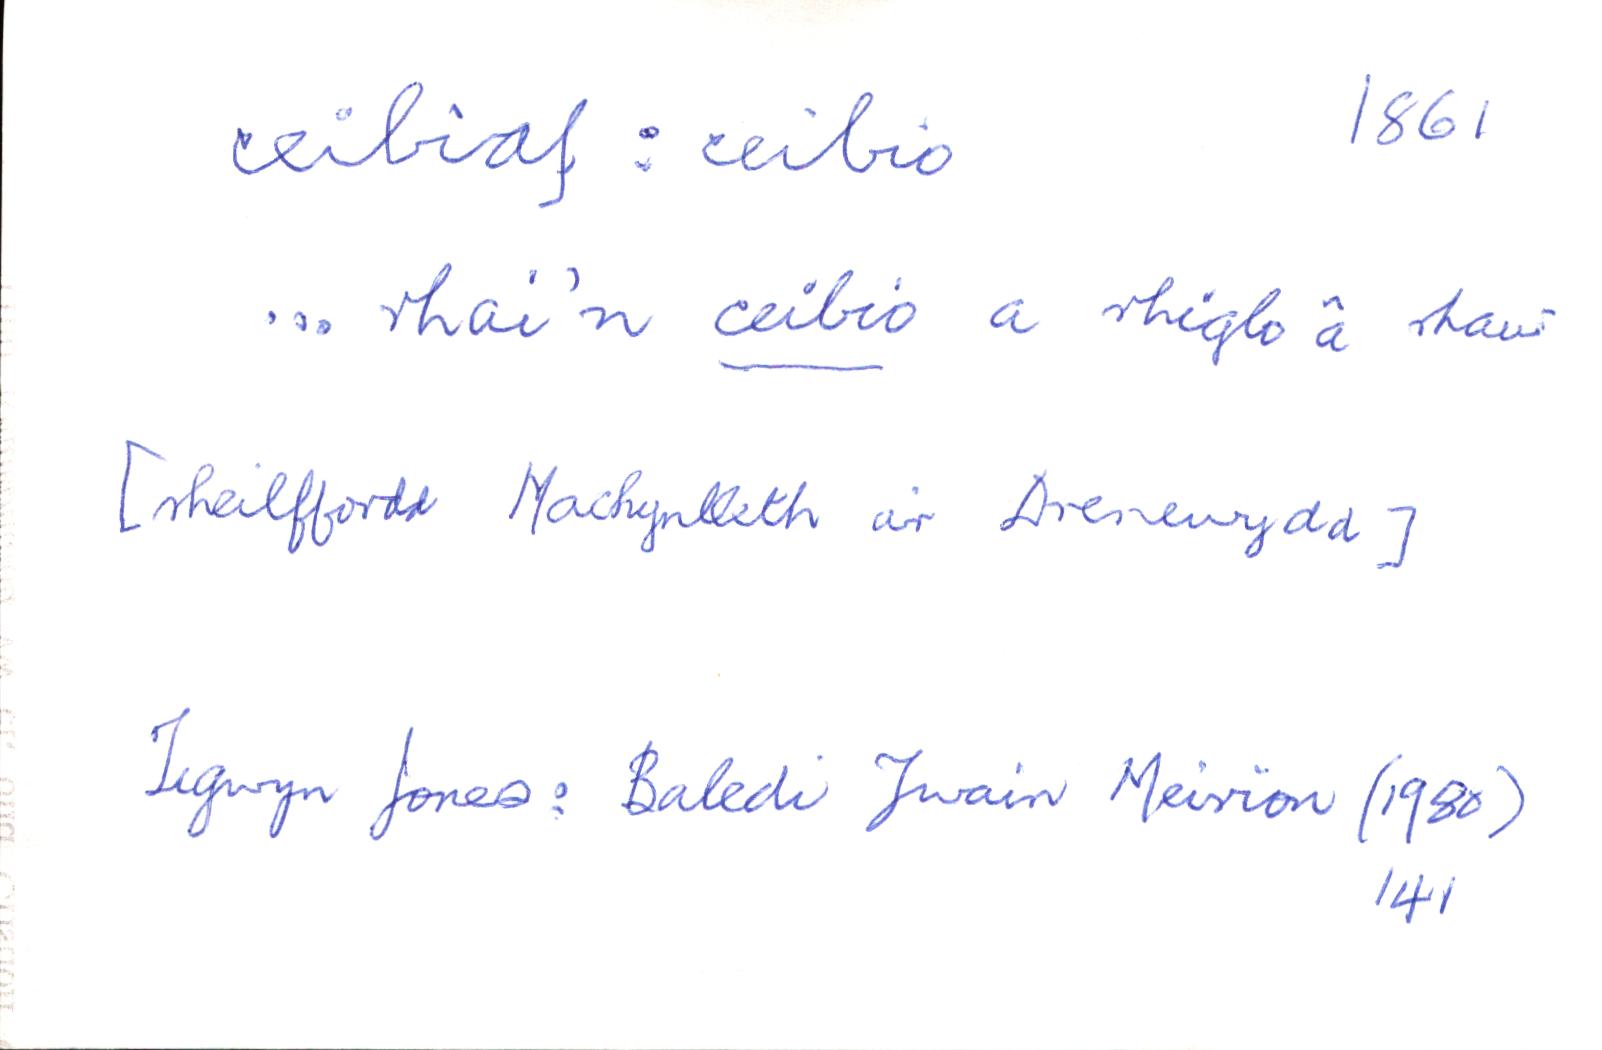 ceibiaf : ceibio 1861
... rhai'n ceibio a rhiglo â rhaw
[rheilffordd Machynlleth a'r Drenewydd]
Tegwyn Jones: Baledi Ywain Meirion (1980)
141